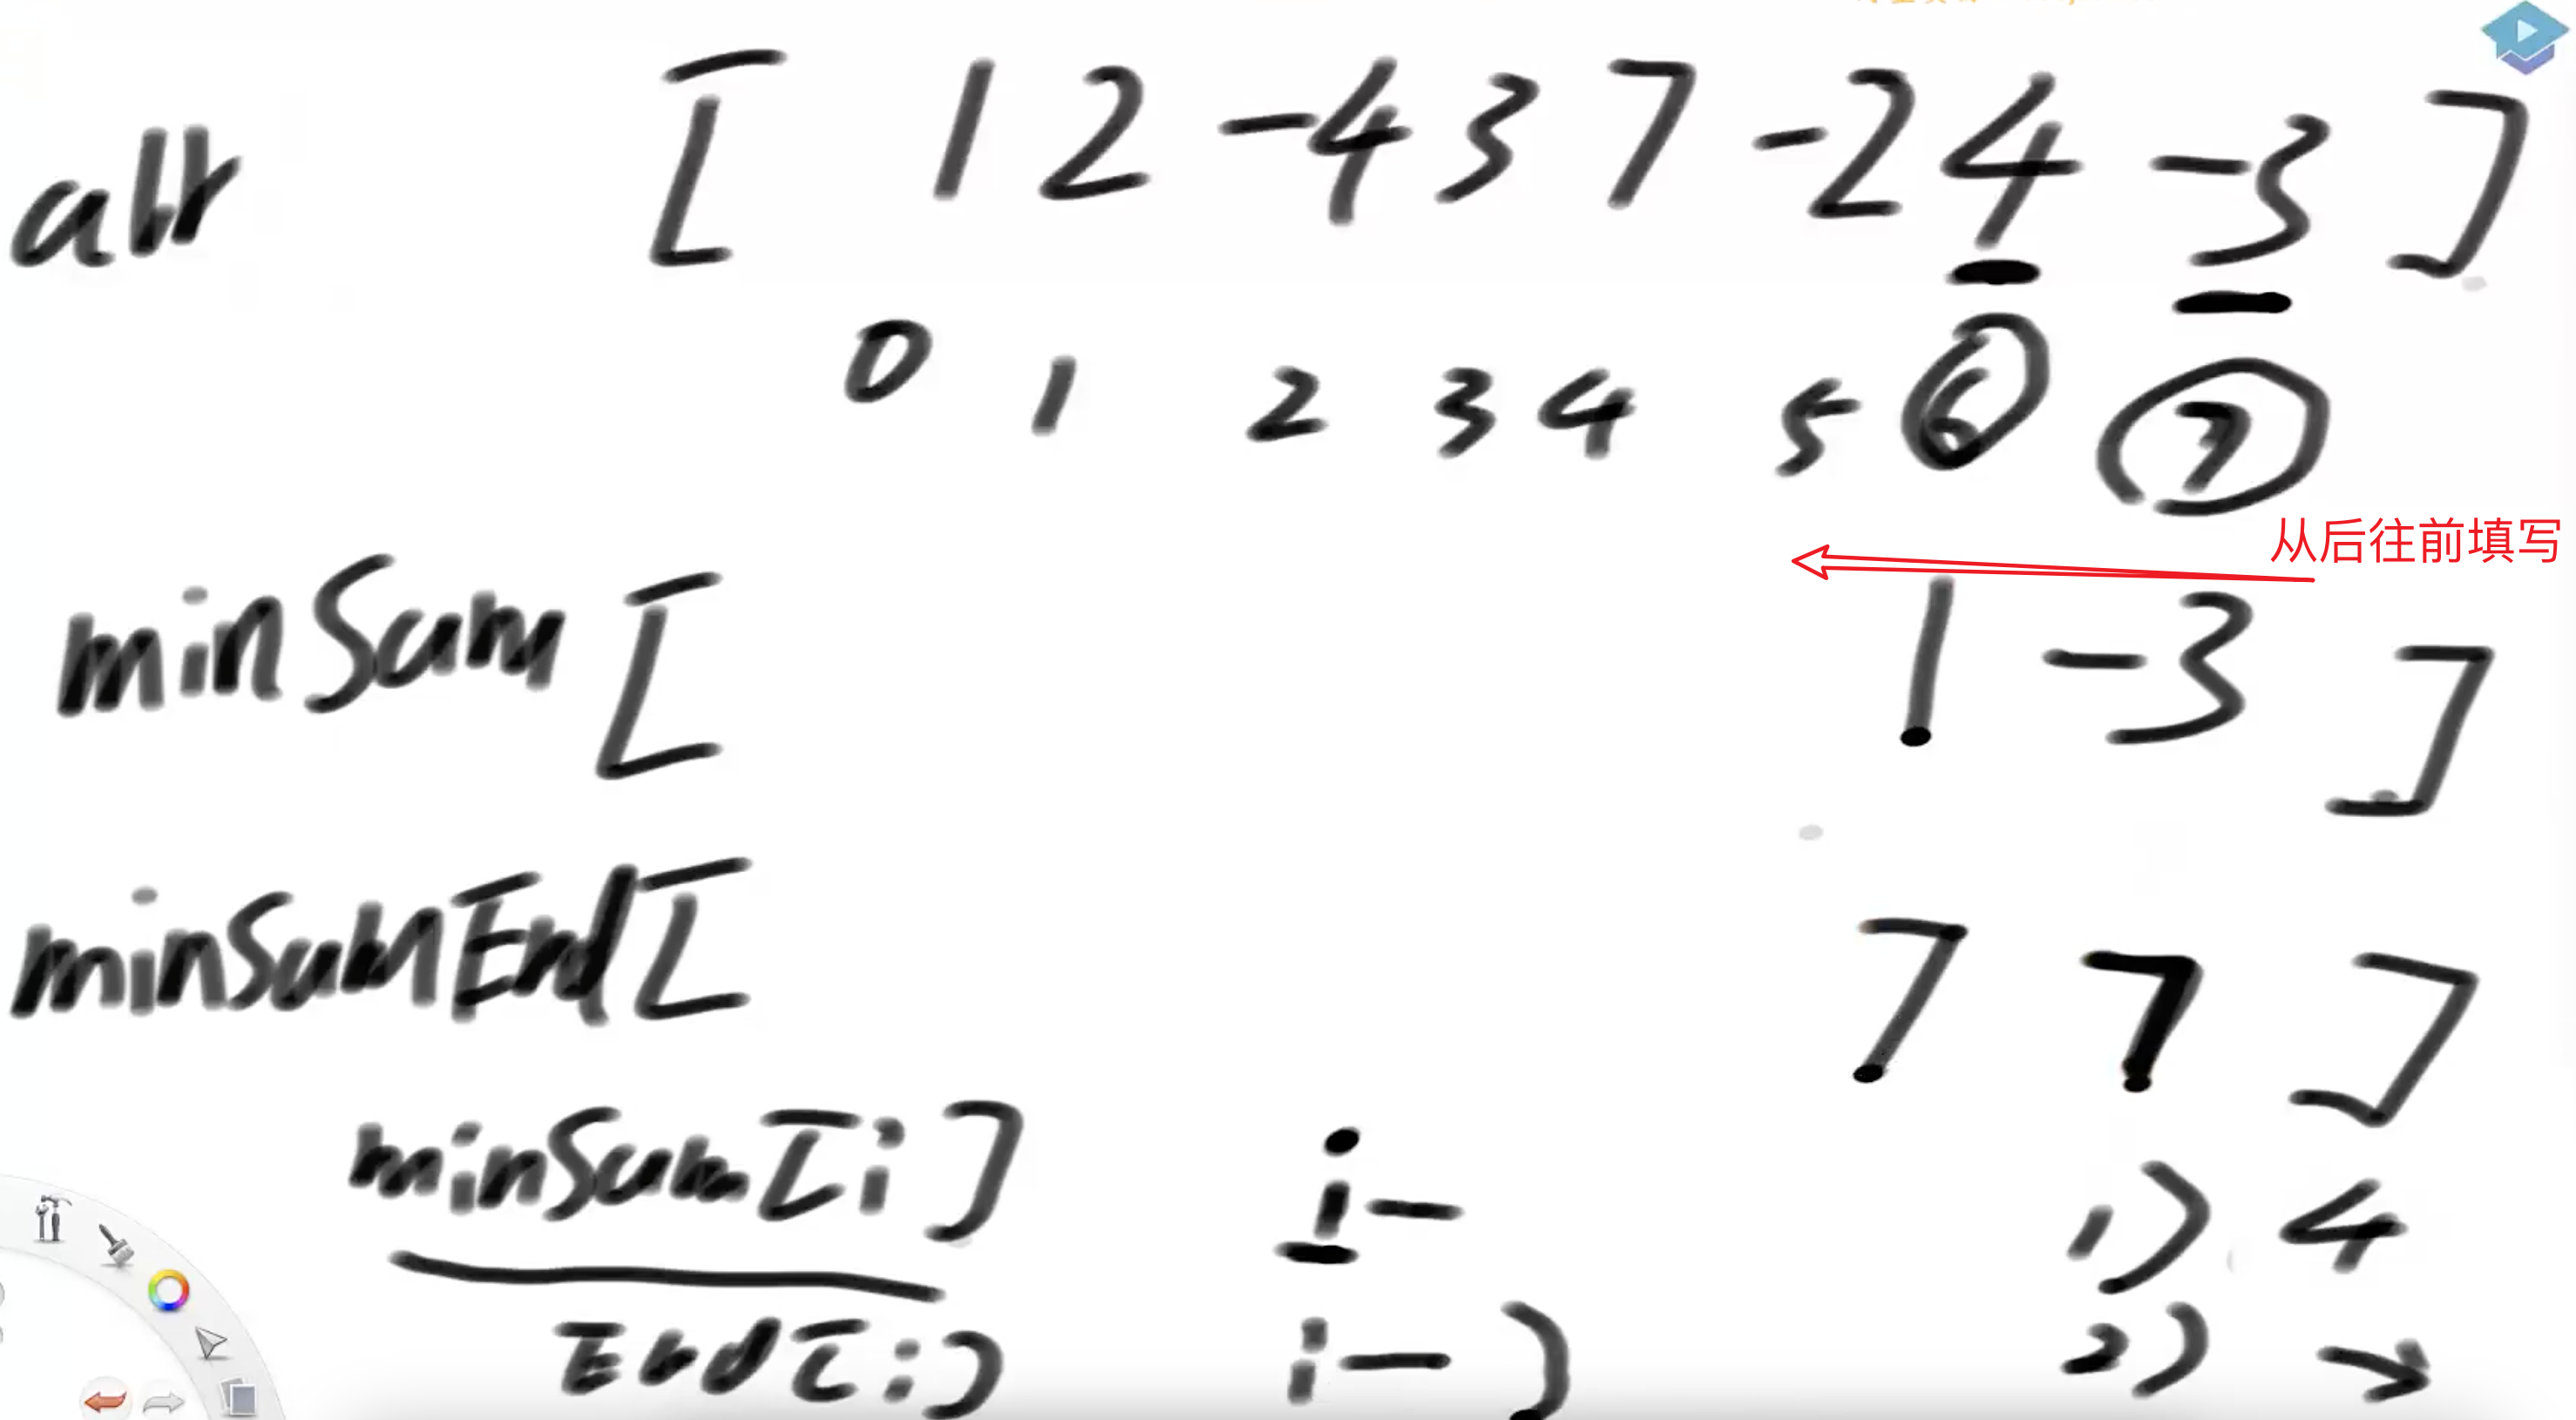 arr [ 1 2 -4 3 7 -2 4 -3 ]
0 1 2 3 4 5 6 7
从后往前填写
minSum [ 1 -3 ]
minSumEnd [ 7 7 ]
minSum[i] i- 1) 4
End[i] i- 2) →